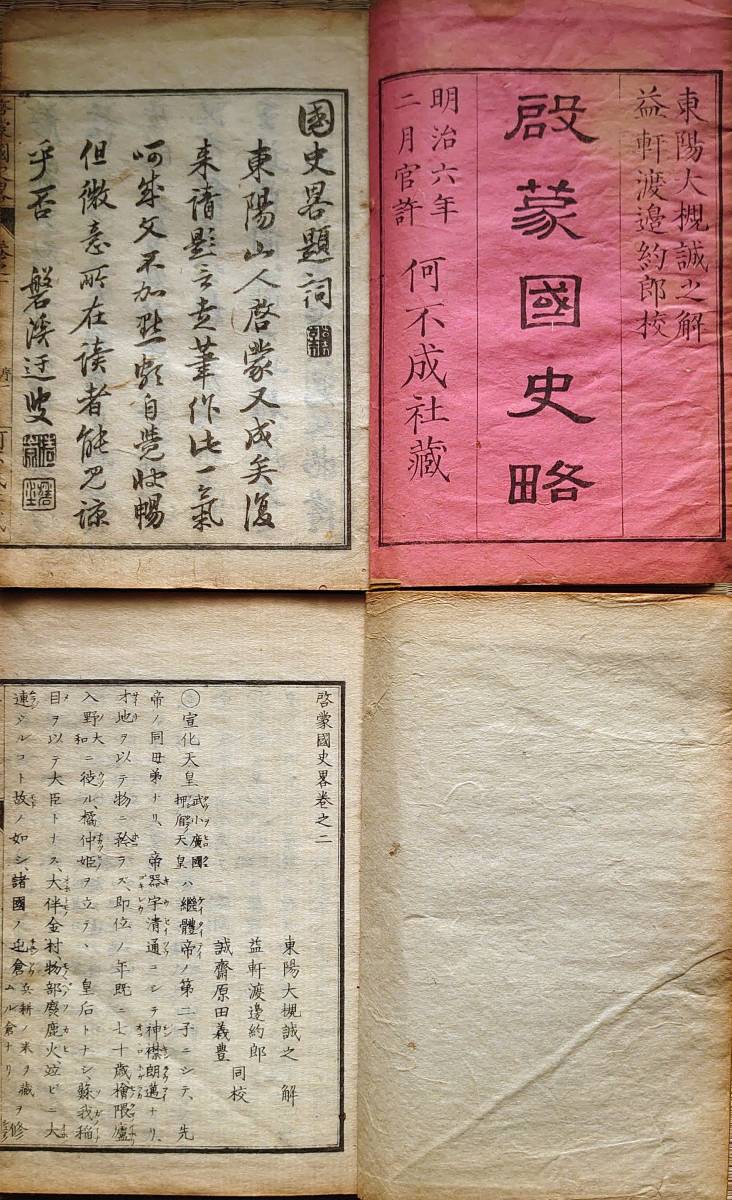 東陽大槻誠之解
益軒渡邊約郎校
啟蒙國史略
明治六年
二月官許
何不成社藏
國史畧題詞
東陽山人啓蒙又成矣復
来請題言走筆作此一氣
呵成文不加點頗自覺快暢
但微意所在讀者能見諒
乎否 磐溪迂叟
啓蒙國史畧卷之二
東陽大槻誠之 解
益軒渡邊約郎
誠齋原田義豊 同校
宣化天皇 武小廣國押廇天皇 ハ繼體帝ノ第二子ニシテ、先
帝ノ同母弟ナリ、帝器宇清通ニシテ神襟朗邁ナリ、
才地ヲ以テ物ニ矜ラズ、即位ノ年既ニ七十歳檜隈廬
入野 大和 ニ徙ル、橘仲姬ヲ立テヽ 皇后トナシ、蘇我稲
目ヲ以テ大臣トナス、大伴金村、物部麁鹿火、竝ビニ大
連タルコト故ノ如シ諸國ノ屯倉 兵耕ノ米ヲ藏ムル倉ナリ ヲ修